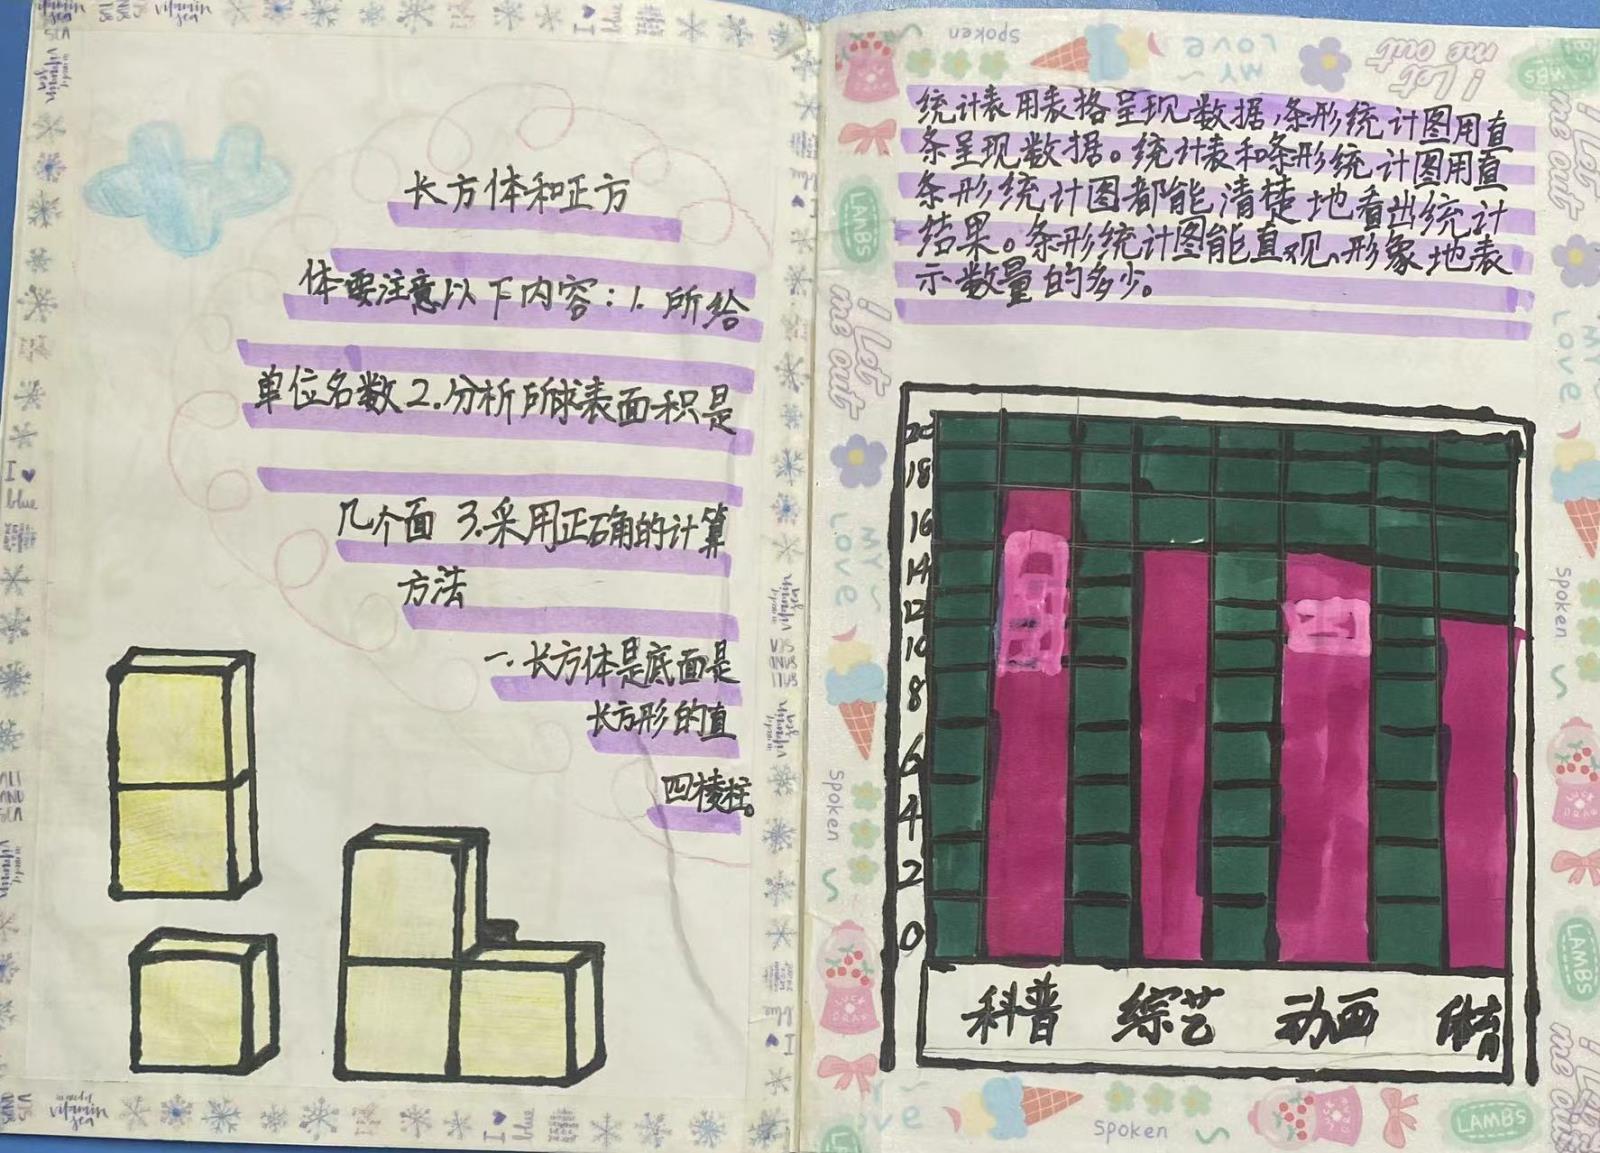 长方体和正方
体要注意以下内容：1. 所给
单位名数2.分析所求表面积是
几个面 3.采用正确的计算
方法
一.长方体是底面是
长方形的直
四棱柱。
统计表用表格呈现数据,条形统计图用直
条呈现数据。统计表和条形统计图用直
条形统计图都能清楚地看出统计
结果。条形统计图能直观、形象地表
示数量的多少。
20
18
16
14
12
10
8
6
4
2
0
科普 综艺 动画 体育
I Let
me out
MY
LOVE
spoken
LAMBS
LUCK
DRAW
I ♥
blue
vitamin
sea